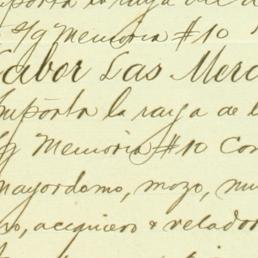 importa la raya del
s/g Memoria #10
Labor Las Merc
Importa la raya de l
s/g Memoria #10 Con
mayordomo, mozo, mu
ro, acequiero & velador